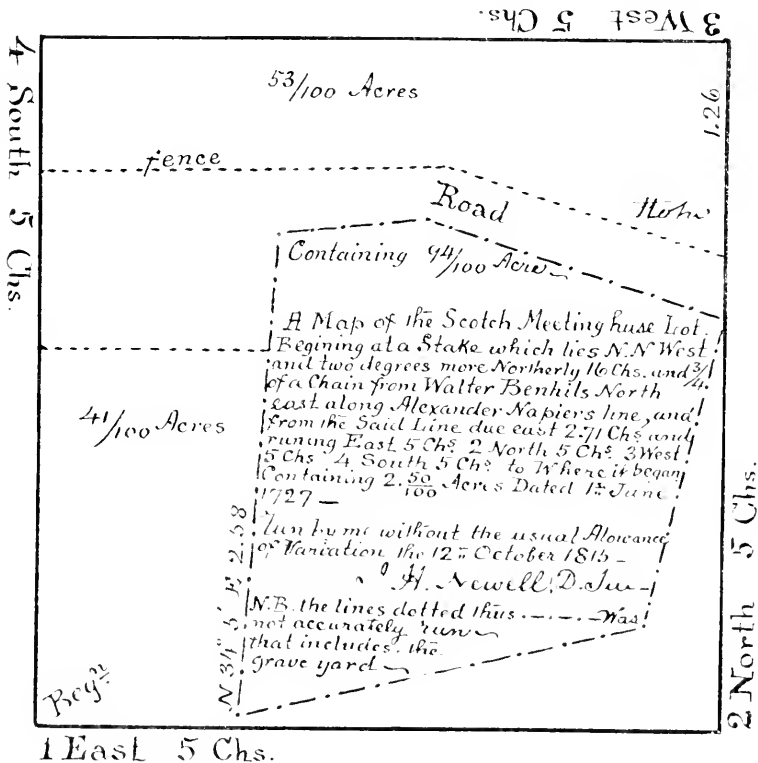 3 West 5 Chs.
4 South 5 Chs.
53/100 Acres
1.26
fence
Road
Containing 94/100 Acre
A Map of the Scotch Meeting huse Lot.
Begining at a Stake which lies N.N West
and two degrees more Northerly 16 Chs. and 3/4
of a Chain from Walter Benhils North
east along Alexander Napiers line, and
from the Said Line due east 2.71 Chs and
runing East 5 Chs. 2 North 5 Chs. 3 West
5 Chs. 4 South 5 Chs. to Where it began
Containing 2.50/100 Acres Dated 1st June
1727 —
41/100 Acres
Run by me without the usual Alowance
of Variation the 12th October 1815 -
H. Newell, D.
N.B. the lines dotted thus .—.—.— Was
not accurately run
that includes the
grave yard
N 34° 5' E 2.58
Beg.n
2 North 5 Chs.
1 East 5 Chs.